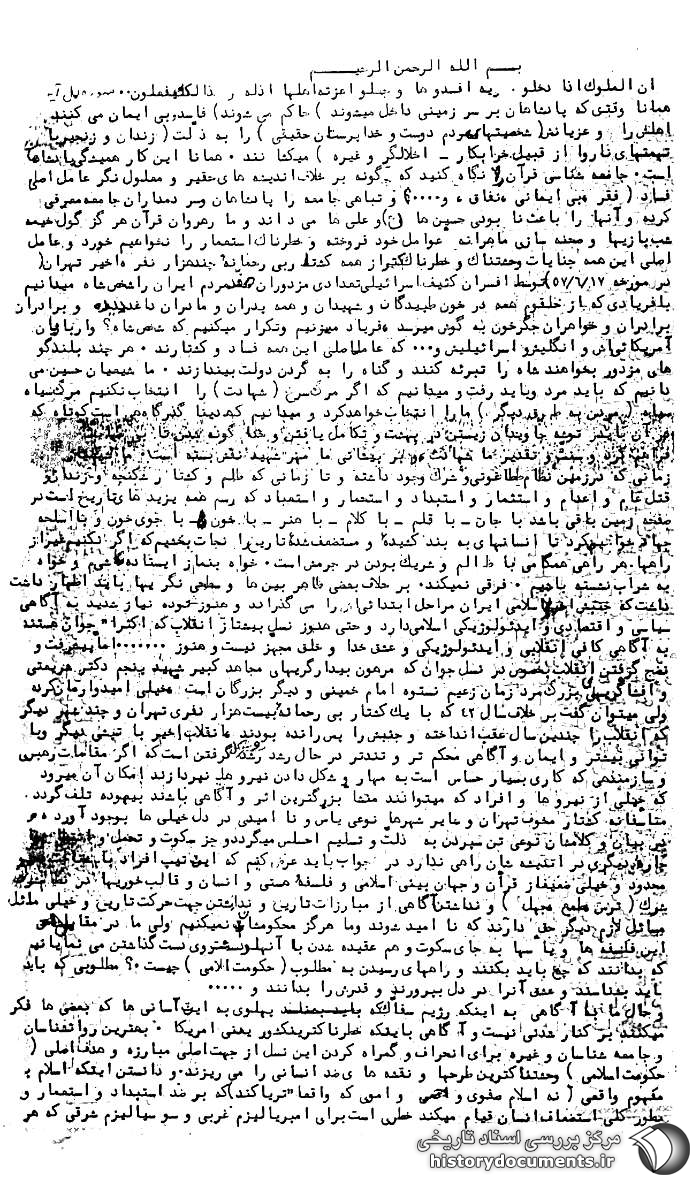 بسم الله الرحمن الرحیم
ان الملوك اذا دخلو افسدو ها و جعلو اعزته اهلها اذله و
همانا وقتی که پادشاهان بر سر زمینی داخل میشوند ) حاکم می شوند ) فاسد و بی ایمان می کنند
اهلش را و عزیزانش( شخصیتهای مردم دوست و خدا پرستان حقیقی ) را به ذلت ( زندان و زنجیر با
تهمتهای ناروا از قبیل خرابکار ـ اخلالگر و غیره ) میکشا نند ۰ همانا این کار همیشگی پادشاها
است ۰ جامعه شناسی قرآن را نگاه کنید که چگونه بر خلاف اندیشه های حقیر و معلول نگر عامل اصلی
فساد ( فقر ، بی ایمانی ، نفاق ، و۰۰۰۰؟ و تباهی جامعه را پادشاهان و سر دمداران جامعه معرفی
کرده و آنها را باعث نا بودی حسین ها (ع) و علی ها می داند و ما رهروان قرآن هر گز گول خیمه
شب بازیها و صحنه سازی ماهرانه عوامل خود فروخته و خطرناك استعمار را نخواهیم خورد و عامل
اصلی این همه جنایات وحشتناك و خطرناکتر از همه کشتار بی رحمانه چند هزار نفره اخیر تهران(
در مورخه ۵۷/۶/۱۷) توسط افسران کثیف اسرائیلی تعدادی مزدوران ضد مردم ایران را شخص شاه میدانیم
با فریادی که از حلقوم همه در خون طپیدگان و شهیدان و همه پدران و مادران داغدیده و برادران
برادران و خواهران جگرخون به گوش میرسد فریاد میزنیم و تکرار میکنیم که شخص شاه؟ و اربابان
آمریکائی اش و انگلیس و اسرائیلیش و۰۰۰ که عامل اصلی این همه فساد و کشتارند ۰ هر چند بلندگو
های مزدور بخواهند شاه را تبرئه کنند و گناه را به گردن دولت بیندازند ۰ ما شیعیان حسین می
دانیم که باید مرد و باید رفت و میدانیم که اگر مرگ سرخ ( شهادت ) را انتخاب نکنیم مرگ سیاه
( مردن به طریق دیگر ) ما را انتخاب خواهد کرد و میدانیم که دنیا گذرگاهی است کوتاه که
در آن باید توشه جاویدان زیستن در بهشت و تکامل یافتن و خدا گونه شدن را
فراهم کرد و تقدیر ما شهادت بر پیشانی ما مهر شهید نقش بسته است
زمانی که در زمین نظام طاغوتی و شرك وجود داشته و تا زمانی که ظلم و کشتار و شکنجه و زندان و
قتل عام و اعدام و استثمار و استبداد و استحمار و استعباد که رسم همه یزید های تاریخ است در
صفحه زمین باقی باشد با جان ـ با قلم ـ با کلام ـ با هنر ـ با خون ـ با جوی خون و با اسلحه
جهاد خواهیم کرد تا انسانهای به بند کشیده و مستضعف شده تاریخ را نجات بخشیم که اگر نکنیم غیر از
راهها، هر راهی همگامی با ظالم و شریك بودن در جرمش است ۰ خواه بنماز ایستاده باشیم و خواه
به شراب نشسته باشیم ۰ فرقی نمیکند ۰ بر خلاف بعضی ظاهر بین ها و سطحی نگر یها باید اظهار داشت
داشت که جنبش اسلامی ایران مراحل ابتدائی را می گذراند و هنوز توده نیاز شدید به آگاهی
سیاسی و اقتصادی و ایدئولوژیکی اسلامی دارد و حتی هنوز نسل پیشتاز انقلاب که اکثرا" جوان هستند
به آگاهی کافی انقلابی و ایدئولوژیکی و عشق خدا و خلق مجهز نیست و هنوز ۰۰۰۰۰۰۰ اما پیشرفت و
نضج گرفتن انقلاب بخصوص در نسل جوان که مرهون بیدارگریهای مجاهد کبیر شهید پنجم دکتر شریعتی
و افشاگریهای بزرگ مرد زمان زعیم نستوه امام خمینی و دیگر بزرگان است خیلی امیدوارمان کرده
ولی میتوان گفت بر خلاف سال ۴۲ که با یك کشتار بی رحمانه بیست هزار نفری تهران و چند شهر دیگر
که انقلاب را چندین سال عقب انداخته و جنبش را پس رانده بودند ، انقلاب اخیر با تپشی دیگر و با
توانی بیشتر و ایمان و آگاهی محکم تر و تندتر در حال رشد گرفتن است که اگر مقامات رهبری
و سازماندهی که کاری بسیار حساس است به مهار و شکل دادن نیرو ها نپردازند امکان آن میرود
که خیلی از نیرو ها و افراد که میتوانند منشأ بزرگترین اثر و آگاهی باشند بیهوده تلف گردد .
متاسفانه کشتار مخوف تهران و سایر شهرها نوعی یاس و نا امیدی در دل خیلی ها بوجود آورده و
در بیان و کلامشان نوعی تن سپردن به ذلت و تسلیم احساس میگردد و جز سکوت و تحمل و
چاره دیگری در اندیشه شان راهی ندارد در جواب باید عرض کنیم که این تیپ افراد با
محدود و خیلی ضعیف از قرآن و جهان بینی اسلامی و فلسفه هستی و انسان و قالب خوریها در نظام
شرك ( ترس ، طمع ، جهل ) و نداشتن آگاهی از مبارزات تاریخ و نداشتن جهت حرکت تاریخ و خیلی مسائل
مسائل لازم دیگر حق دارند که نا امید شوند و ما هرگز محکومشان نمیکنیم ولی ما در مقابل
این فلسفه ها و یاسها به جای سکوت و هم عقیده شدن با آنها دست روی دست گذاشتن می نمایانیم
که بدانند که چه باید بکنند و راههای رسیدن به مطلوب ( حکومت اسلامی ) چیست ۰؟ مطلوبی که باید
باید بشناسند و عشق آنرا در دل بپرورند و قدرش را بدانند و ۰۰۰۰۰
و حال ما با آگاهی به اینکه رژیم سفاك پهلوی به این آسانی ها که بعضی ها فکر
میکنند بر کنار شدنی نیست و آگاهی باینکه خطرناکترین کشور یعنی امریکا ۰ بهترین روانشناسان
و جامعه شناسان و غیره برای انحراف و گمراه کردن این نسل از جهت اصلی مبارزه و هدف اصلی (
حکومت اسلامی ) وحشتناکترین طرحها و نقشه های ضد انسانی را می ریزند و دانستن اینکه اسلام به
مفهوم واقعی ( نه اسلام صفوی و و اموی که واقعا" تریاکند) که بر ضد استبداد و استعمار و
بطور کلی استضعاف انسان قیام میکند خطری است برای امپریالیزم غربی و سوسیالیزم شرقی که هر
مرکز بررسی اسناد تاریخی
historydocuments.ir